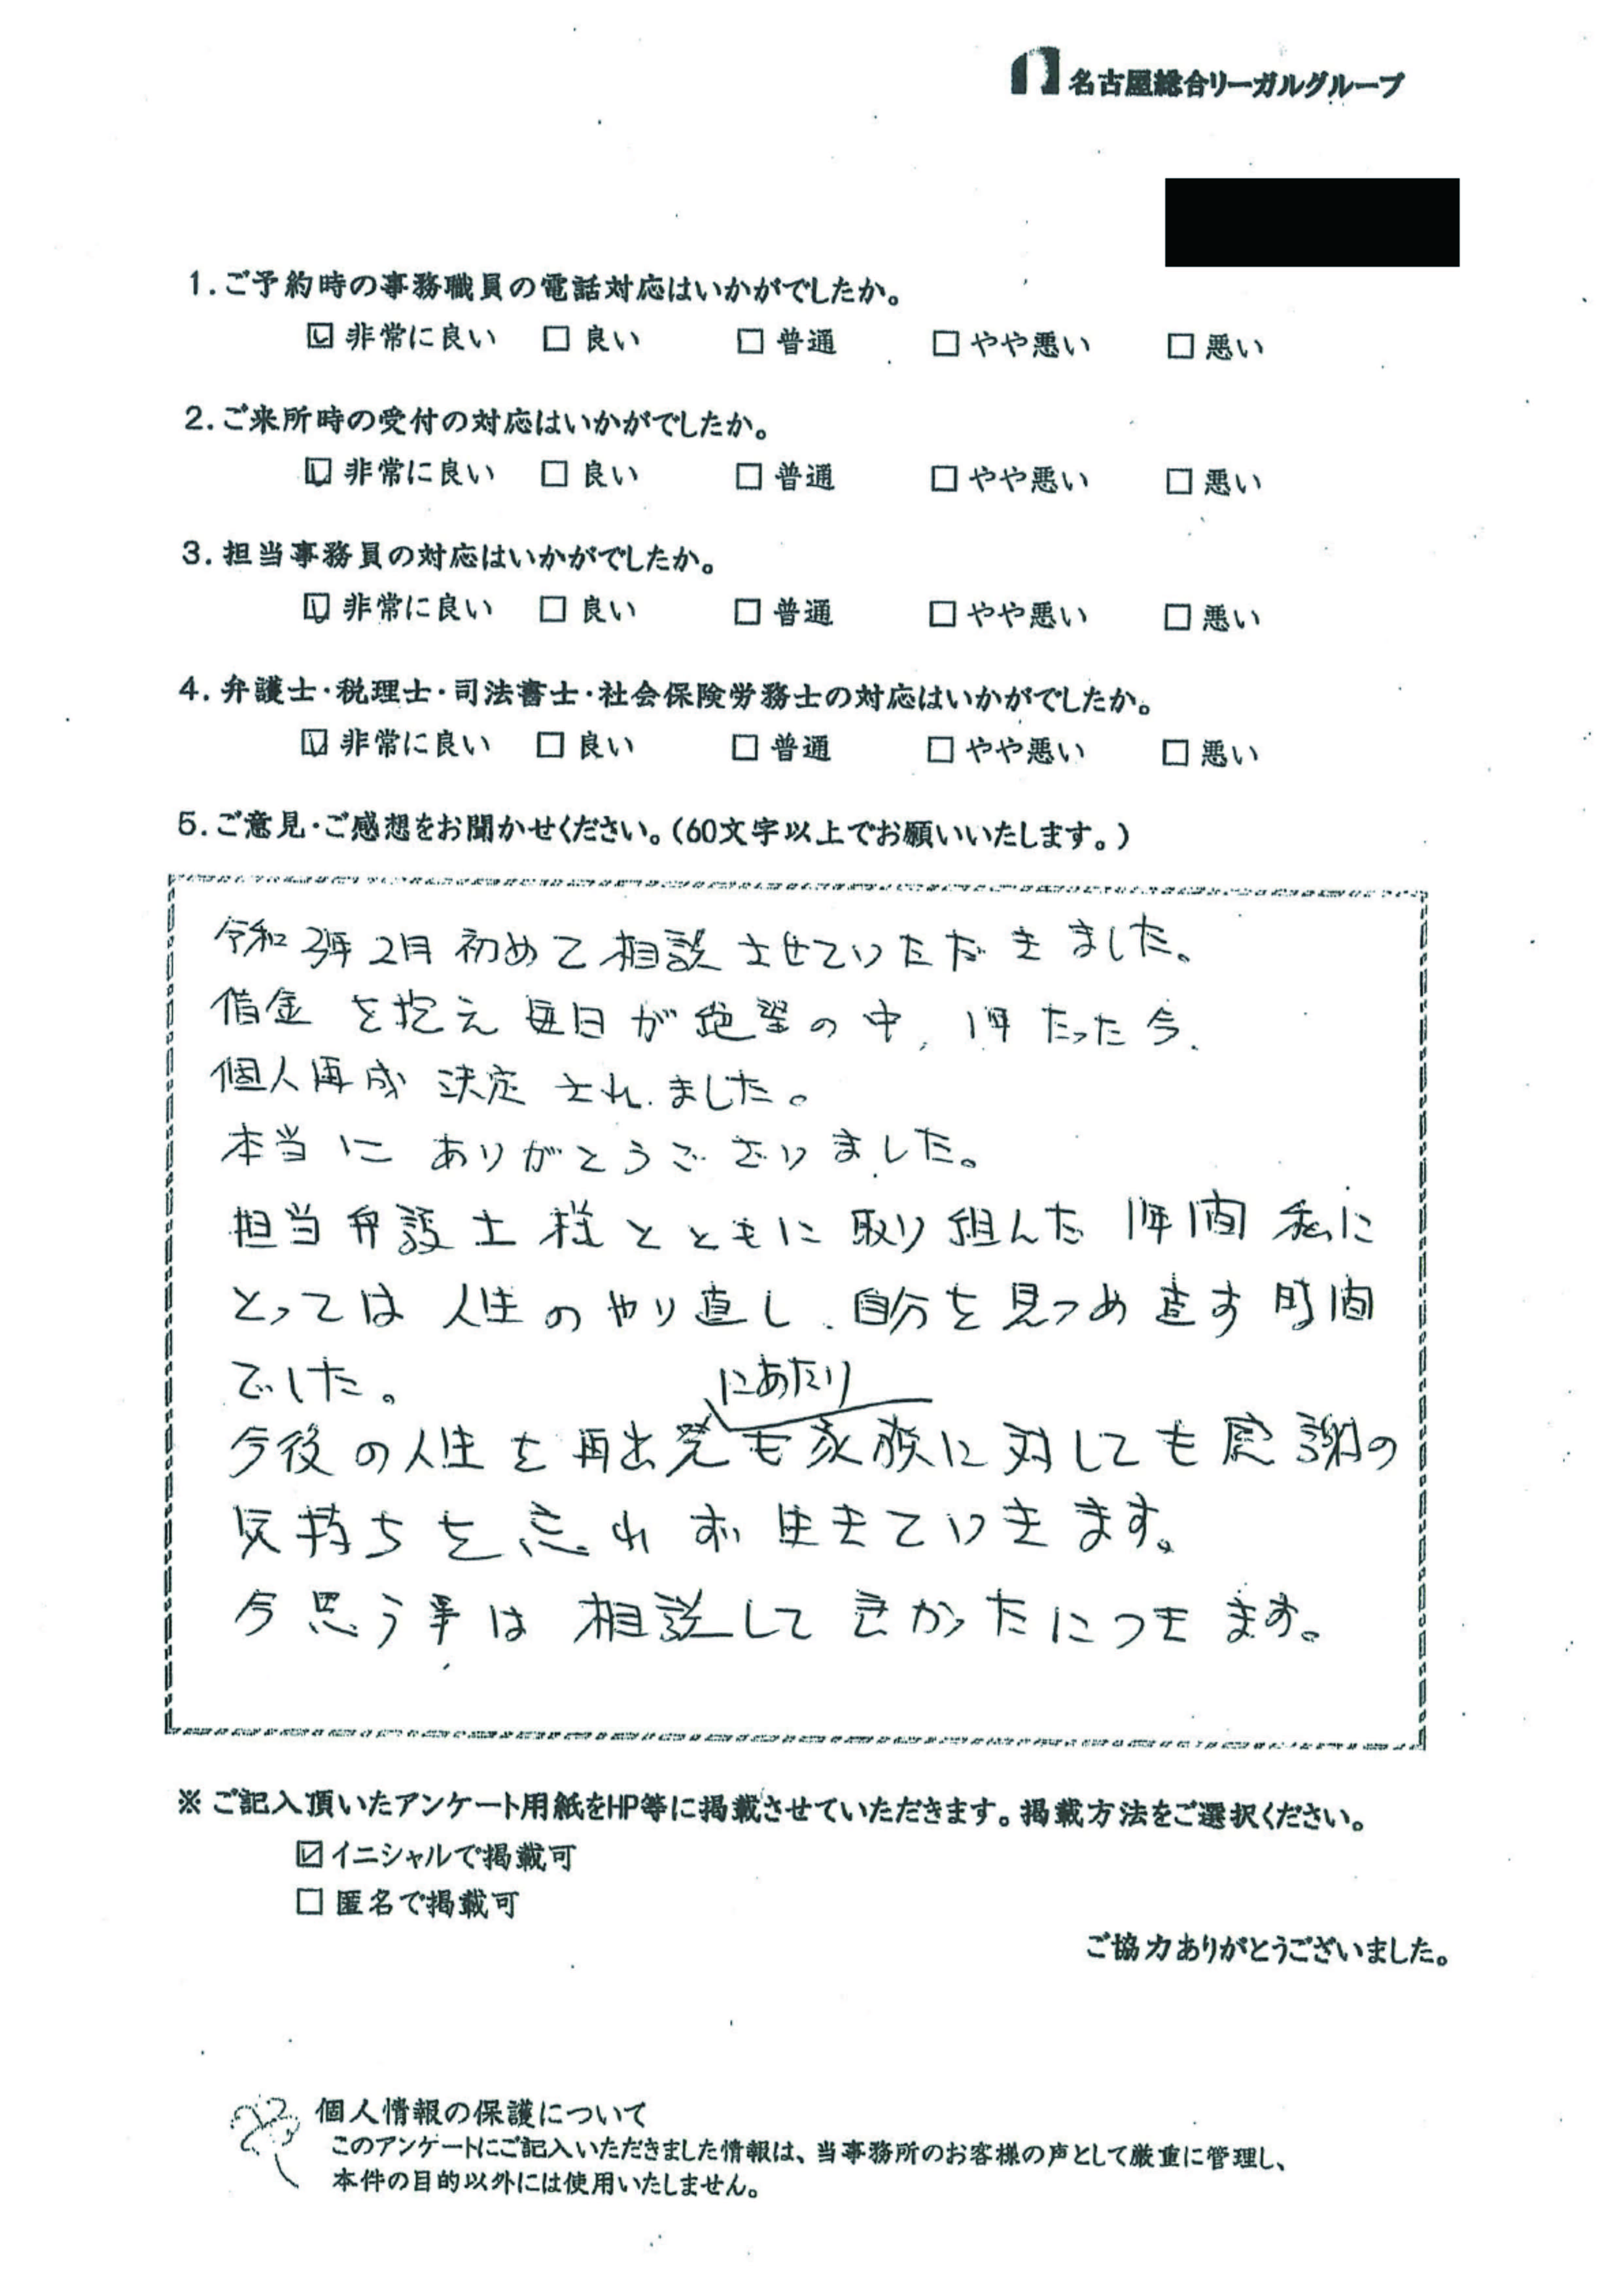 名古屋総合リーガルグループ
1.ご予約時の事務職員の電話対応はいかがでしたか。
☑ 非常に良い □ 良い □ 普通 □ やや悪い □ 悪い
2.ご来所時の受付の対応はいかがでしたか。
☑ 非常に良い □ 良い □ 普通 □ やや悪い □ 悪い
3.担当事務員の対応はいかがでしたか。
☑ 非常に良い □ 良い □ 普通 □ やや悪い □ 悪い
4.弁護士・税理士・司法書士・社会保険労務士の対応はいかがでしたか。
☑ 非常に良い □ 良い □ 普通 □ やや悪い □ 悪い
5.ご意見・ご感想をお聞かせください。(60文字以上でお願いいたします。)
令和3年2月 初めて相談させていただきました。
借金を抱え毎日が絶望の中、1年たった今、
個人再成決定されました。
本当にありがとうございました。
担当弁護士様とともに取り組んだ1年間私に
とっては人生のやり直し、自分を見つめ直す時間
でした。
にあたり
今後の人生を再出発も家族に対しても感謝の
気持ちを忘れず生きていきます。
今思う事は相談してよかったにつきます。
※ご記入頂いたアンケート用紙をHP等に掲載させていただきます。掲載方法をご選択ください。
☑イニシャルで掲載可
□ 匿名で掲載可
ご協力ありがとうございました。
個人情報の保護について
このアンケートにご記入いただきました情報は、当事務所のお客様の声として厳重に管理し、
本件の目的以外には使用いたしません。